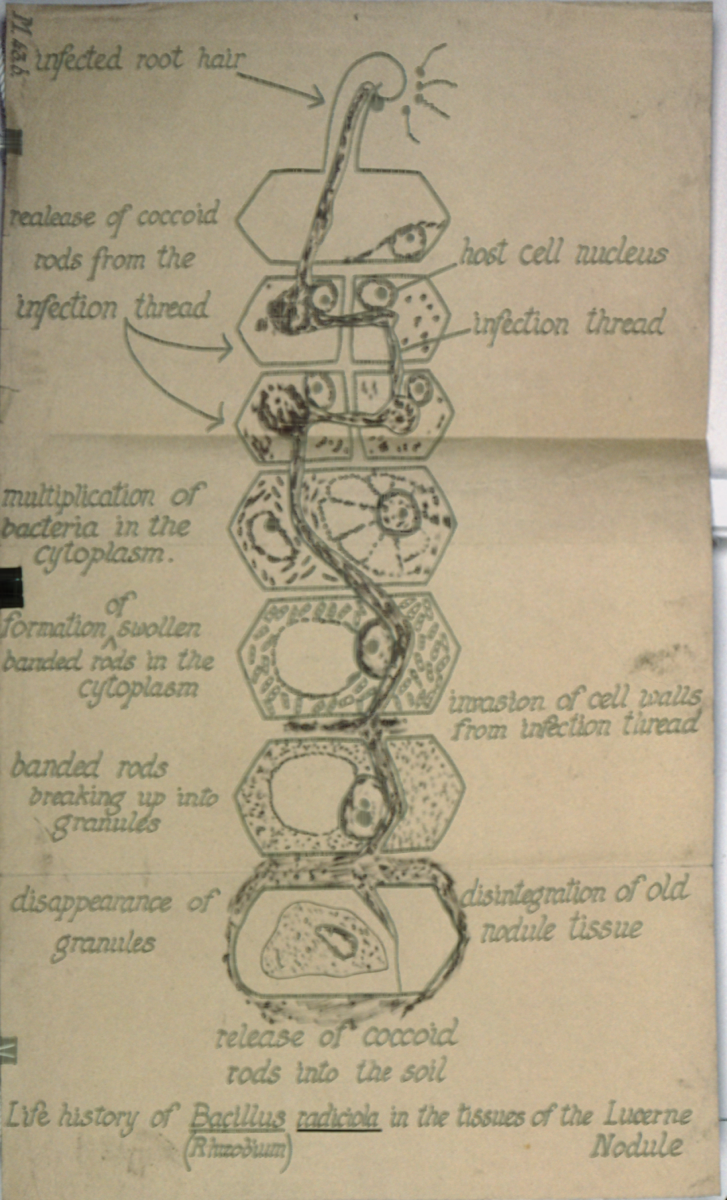 infected root hair
realease of coccoid
rods from the
infection thread
host cell nucleus
infection thread
multiplication of
bacteria in the
cytoplasm.
of
formation swollen
banded rods in the
cytoplasm
invasion of cell walls
from infection thread
banded rods
breaking up into
granules
disappearance of
granules
disintegration of old
nodule tissue
release of coccoid
rods into the soil
Life history of Bacillus radiciola in the tissues of the Lucerne
(Rhizobium) Nodule